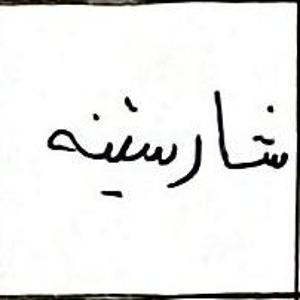 شارسینه